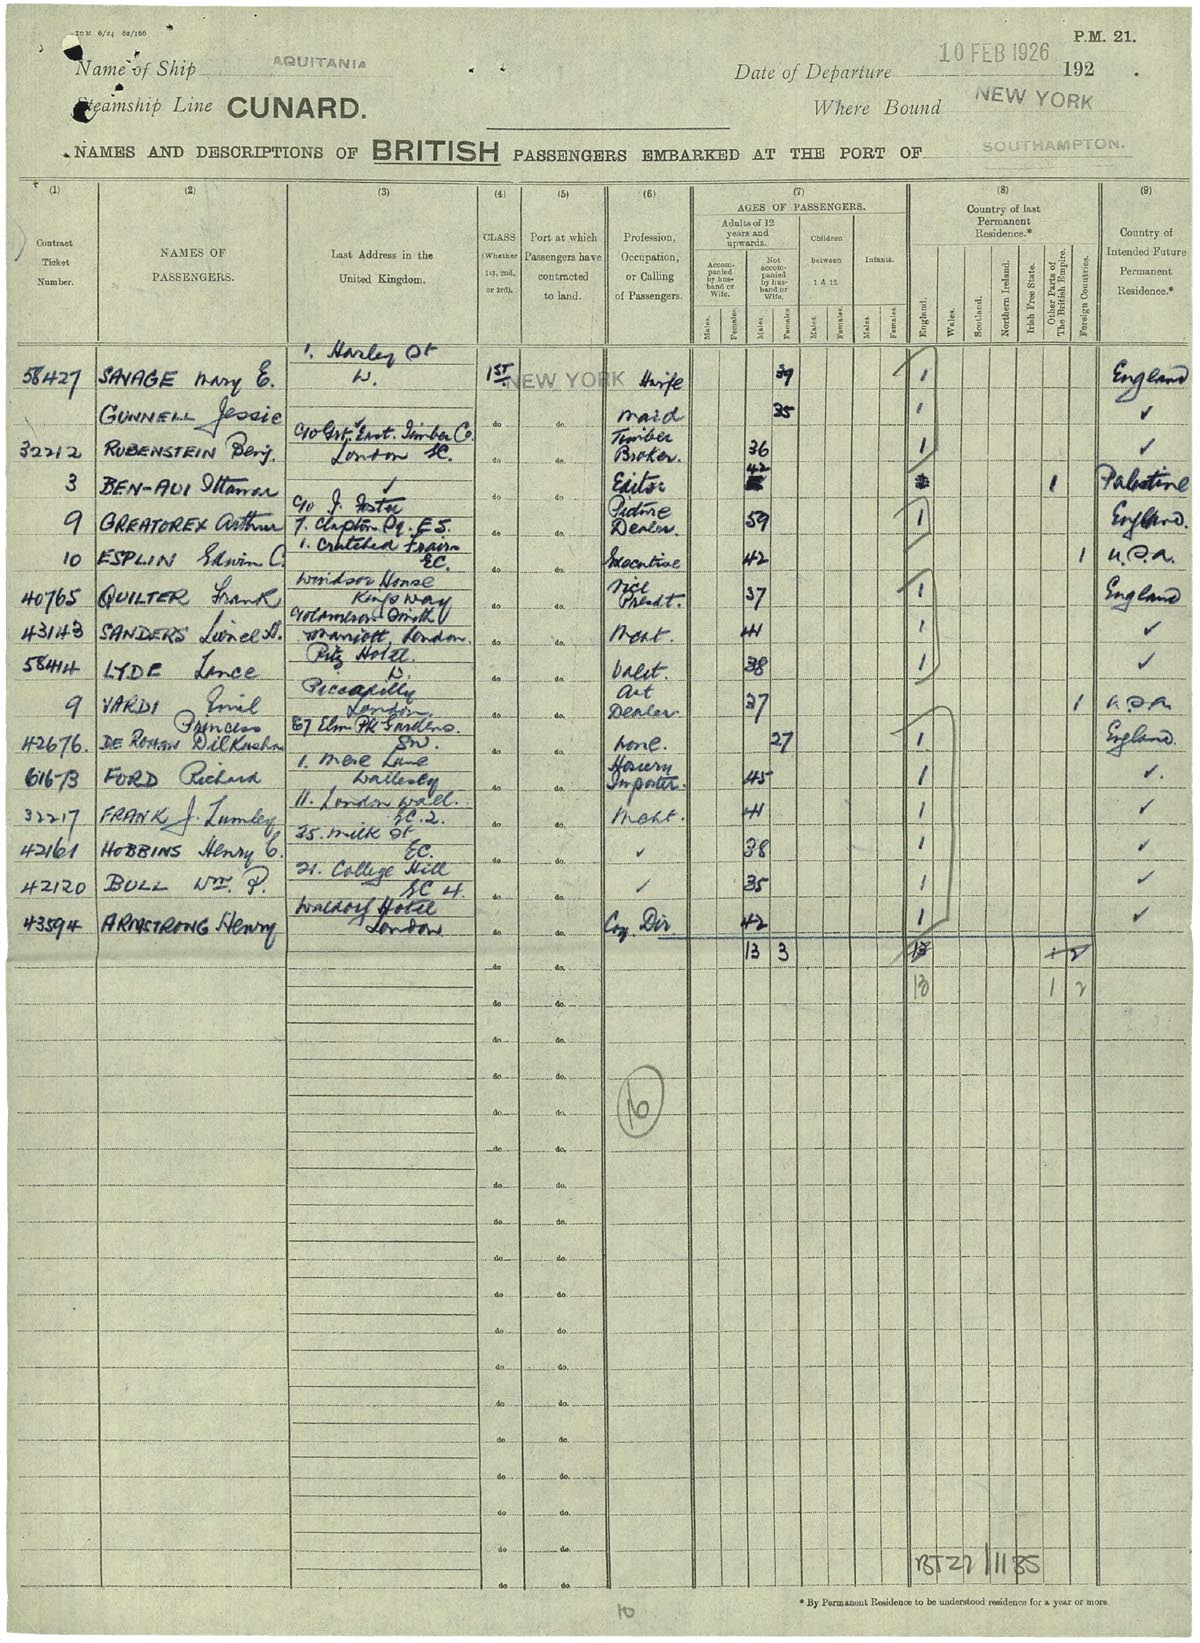 IDM 6/24 52/166
P.M. 21.
Name of Ship AQUITANIA
Date of Departure 10 FEB 1926 192 .
Steamship Line CUNARD.
Where Bound NEW YORK
NAMES AND DESCRIPTIONS OF BRITISH PASSENGERS EMBARKED AT THE PORT OF SOUTHAMPTON.
(1) (2) (3) (4) (5) (6) (7) (8) (9)
Contract Ticket Number.
NAMES OF PASSENGERS.
Last Address in the United Kingdom.
CLASS (Whether 1st, 2nd, or 3rd).
Port at which Passengers have contracted to land.
Profession, Occupation, or Calling of Passengers.
AGES OF PASSENGERS.
Adults of 12 years and upwards.
Accompanied by husband or Wife.
Not accompanied by husband or Wife.
Children between 1 & 12.
Infants.
Males. Females. Males Females Males. Females. Males Females.
Country of last Permanent Residence.*
England. Wales. Scotland. Northern Ireland. Irish Free State. Other Parts of The British Empire. Foreign Countries.
Country of Intended Future Permanent Residence.*
58427 SAVAGE Mary E. 1. Harley St W. 1ST NEW YORK Hwife 39 1 England
GUNNELL Jessie do do. Maid 35 1 ✓
32212 RUBENSTEIN Benj. c/o Grt. East. Timber Co. London EC. do do. Timber Broker. 36 1 ✓
3 BEN-AVI Ittamar ✓ do do. Editor 42 1 Palestine
9 GREATOREX Arthur c/o J. Foster 7. Clapton Sq. E5. do do. Picture Dealer. 59 1 England.
10 ESPLIN Edwin C. 1. Crutched Friars EC. do do. Executive 42 1 U.S.A.
40765 QUILTER Frank Windsor House Kingsway do do. Vice Presdt. 37 1 England
43143 SANDERS Lionel c/o Cameron Smith Marriott, London. do do. Mcht. 41 1 ✓
58414 LYDE Lance Ritz Hotel. W. do do. Valet. 38 1 ✓
9 VARDI Emil Piccadilly London. do do. Art Dealer 37 1 U.S.A.
42676. Princess DE ROHAN Dilkusha 87 Elm Pk Gardens. SW. do do. None. 27 1 England.
61673 FORD Richard 1. Mere Lane Wallasey do do. Hosiery Importer. 45 1 ✓.
32217 FRANK J. Lumley 11. London Wall. EC.2. do do. Mcht. 41 1 ✓
42161 HOBBINS Henry C. 35. Milk St EC. do do. ✓ 38 1 ✓
42120 BULL Wm. P. 21. College Hill EC 4. do do. ✓ 35 1 ✓
43594 ARMSTRONG Henry Waldorf Hotel London. do do. Coy. Dir. 42 1 ✓
do do. 13 3 13 1 2
do do. 13 1 2
do do.
do do.
do do.
16
do do.
do do.
do do.
do do.
do do.
do do.
do do.
do do.
do do.
do do.
do do.
do do.
do do.
do do.
BT27/1135
do do.
* By Permanent Residence to be understood residence for a year or more.
10